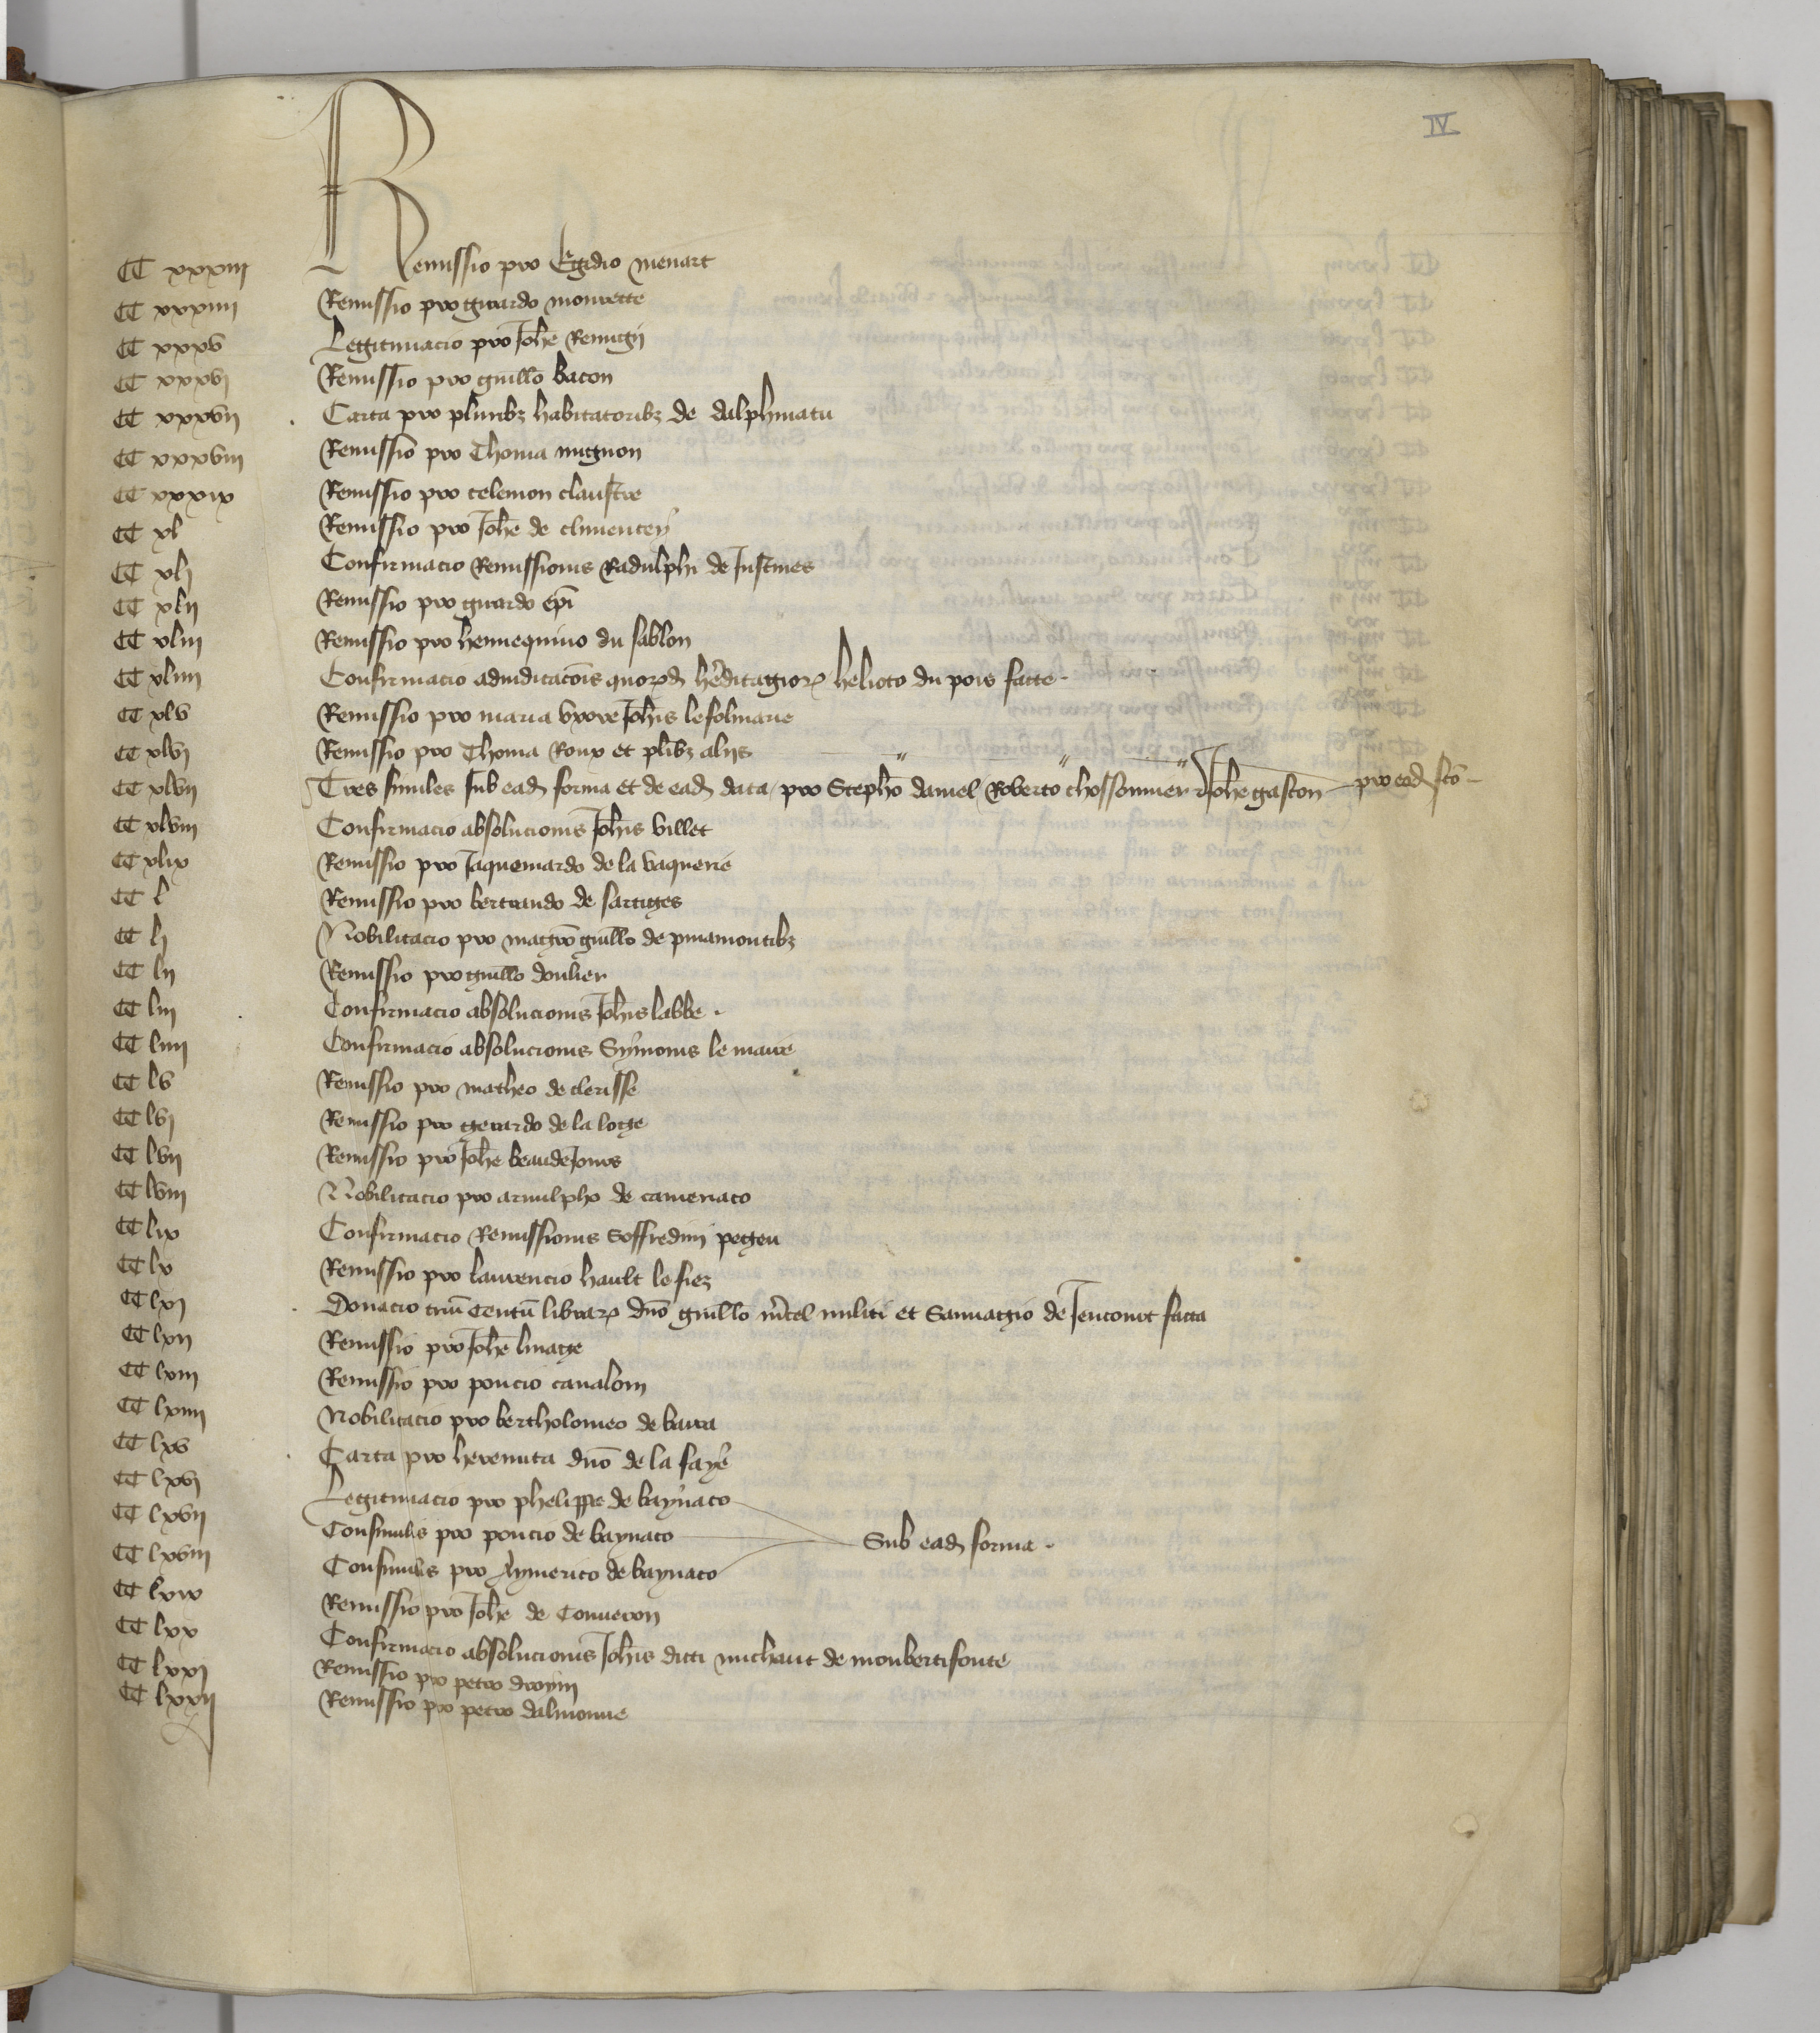 IV
CC xxxiii Remissio pro Egidio menart
CC xxxiiii Remissio pro girardo mourette
CC xxxv Legitimacio pro Johē Remigii
CC xxxvi Remissio pro guillō bacon
CC xxxvii Carta pro pluribz habitatoribz de dalphinatu
CC xxxviii Remissio pro Thoma mignon
CC xxxix Remissio pro telemon claustre
CC xl Remissio pro Johē de climencey
CC xli Confirmacio Remissionis Radulphi de Justines
CC xlii Remissio pro girardo ep̄i
CC xliii Remissio pro hennequino du sablon
CC xliiii Confirmacio adiudicacōis quorūd hēditagiorꝝ helioto du pois facte
CC xlv Remissio pro maria uxore Joh̄is lefolmarie
CC xlvi Remissio pro Thoma Roux et plibz aliis
CC xlvii Tres similes sub ead forma et de ead data / pro Stephō daniel / Roberto chossonnier et Johē gaston pro ead fcō
CC xlviii Confirmacio absolucionis Joh̄is villet
CC xlix Remissio pro Jaquemardo de la vaquerie
CC l Remissio pro bertrando de sartiges
CC li Nobilitacio pro magrō guillō de pmamontibz
CC lii Remissio pro guillō doulier
CC liii Confirmacio absolucionis Joh̄is labbe
CC liiii Confirmacio absolucionis Symonis le maire
CC lv Remissio pro matheo de clerisse
CC lvi Remissio pro gerardo de la loge
CC lvii Remissio pro Johē beaudeJours
CC lviii Nobilitacio pro arnulpho de cameraco
CC lix Confirmacio Remissionis Soffredini pegeu
CC lx Remissio pro laurencio hault le fiez
CC lxi Donacio triū Centū librarꝝ dn̄o guillō m̄cel militi et Sauvagio de Jeucourt facta
CC lxii Remissio pro Johē linage
CC lxiii Remissio pro poncio cavalom
CC lxiiii Nobilitacio pro bertholomeo de barra
CC lxv Carta pro heremita dn̄o de la faye
CC lxvi Legitimacio pro phelippe de baynaco
CC lxvii Consimilis pro poncio de baynaco Sub ead forma
CC lxviii Consimilis pro Aymerico de baynaco
CC lxix Remissio pro Johē de Converon
CC lxx Confirmacio absolucionis Joh̄is dicti michaut de monbertifonte
CC lxxi Remissio pro petro droyni
CC lxxii Remissio pro petro dalmonne